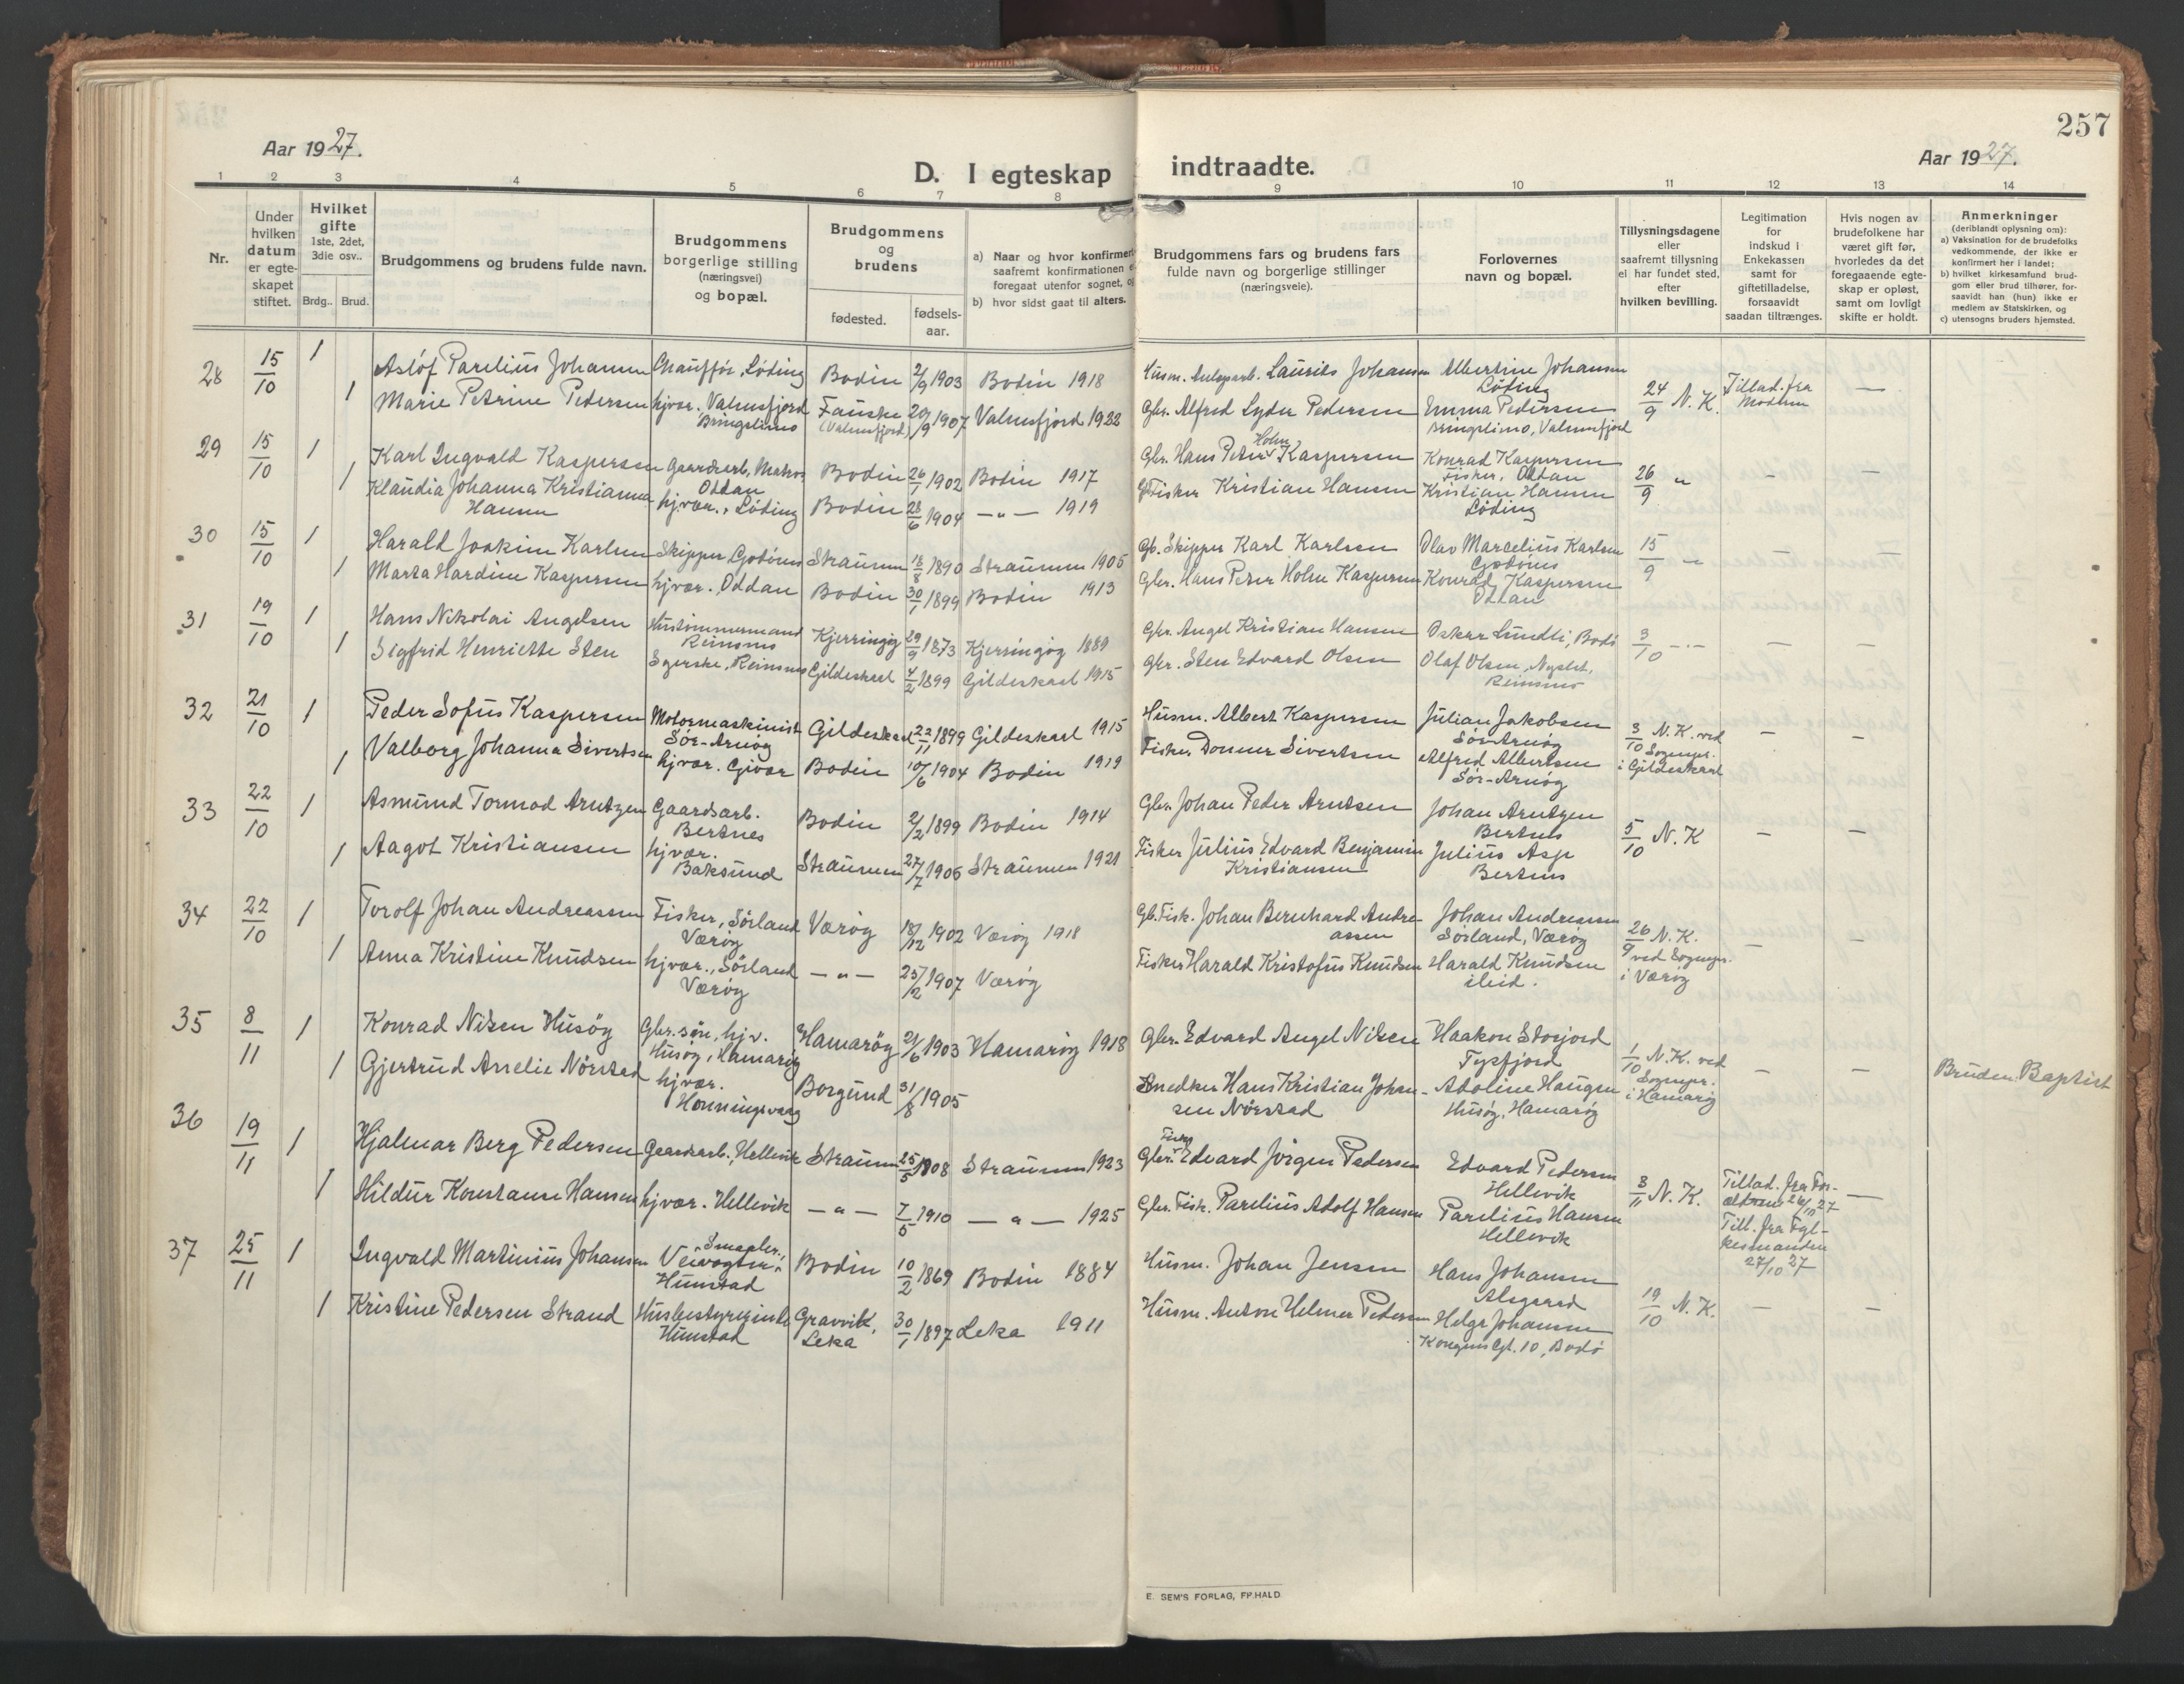 257
Aar 1927.
Aar 1927.
D. I egteskap indtraadte.
1 2 3 4 5 6 7 8 9 10 11 12 13 14
Nr.
Under hvilken datum er egteskapet stiftet.
Hvilket gifte 1ste, 2det, 3die osv..
Brdg.. Brud.
Brudgommens og brudens fulde navn.
Brudgommens borgerlige stilling (næringsvei) og bopæl.
Brudgommens og brudens
fødested.
fødsels-aar.
a) Naar og hvor konfirmert
saafremt konfirmationen
foregaat utenfor sognet,
b) hvor sidst gaat til alters.
Brudgommens fars og brudens fars
fulde navn og borgerlige stillinger
(næringsveie).
Forlovernes
navn og bopæl.
Tillysningsdagene
eller
saafremt tillysning
ei har fundet sted,
efter
hvilken bevilling.
Legitimation
for
indskud i
Enkekassen
samt for
giftetilladelse,
forsaavidt
saadan tiltrænges.
Hvis nogen av
brudefolkene har
været gift før,
hvorledes da det
foregaaende egte-
skap er opløst,
samt om lovligt
skifte er holdt.
Anmerkninger
(deriblandt oplysning om):
a) Vaksination for de brudefolks
vedkommende, der ikke er
konfirmert her i landet;
b) hvilket kirkesamfund brud-
gom eller brud tilhører, for-
saavidt han (hun) ikke er
medlem av Statskirken, og
c) utensogns bruders hjemsted.
28 15/10 1 Aslóf Parelius Johansen Chauffør, Løding Bodin 2/9 1903 Bodin 1918 Husm. Laurits Johansen Albertine Johansen Løding 24/9 N. K. Tillad. fra Modern —
1 Marie Petrine Pedersen hjvær. Valnesfjord Bringslimo Fauske (Valnesfjord) 20/9 1907 Valnesfjord 1922 Gbr. Alfred Lyder Pedersen Emma Pedersen Bringslimo, Valnesfjord
29 15/10 1 Karl Ingvald Kaspersen Gaardsarb, Matros Oddan Bodin 26/1 1902 Bodin 1917 Gbr. Hans Peter Holm Kaspersen Konrad Kaspersen Fisker, Oddan 26/9 " - -
1 Klaudia Johanna Kristianna Hansen hjvær., Løding Bodin 28/6 1904 — " — 1919 Fisker Kristian Hansen Kristian Hansen Løding
30 15/10 1 Harald Joakim Karlsen Skipper, Godönes Straumen 18/8 1890 Straumen 1905 Gb. Skipper Karl Karlsen Olav Marcelius Karlsen Godönes 15/9 " - -
1 Marta Hardine Kaspersen hjvær. Oddan Bodin 30/1 1899 Bodin 1913 Gbr. Hans Peter Holm Kaspersen Konrad Kaspersen Oddan
31 19/10 1 Hans Nikolai Angelsen Hustømmermand Reinsnes Kjerringøy 29/9 1873 Kjerringøy 1889 Gbr. Angel Kristian Hansen Oskar Lundli, Bodö 3/10 — " — - -
1 Sigfrid Henriette Sten Syerske, Reinsnes Gildeskaal 4/2 1899 Gildeskaal 1915 Gbr. Sten Edvard Olsen Olaf Olsen, Nyslet, Reinsnes
32 21/10 1 Peder Sofus Kaspersen Motormaskinist Sör-Arnöy Gildeskaal 22/11 1899 Gildeskaal 1915 Husm. Albert Kaspersen Julian Jakobsen Sör-Arnöy 3/10 N. K. ved Sognepr. i Gildeskaal - -
1 Valborg Johanna Sivertsen hjvær. Givær Bodin 10/6 1904 Bodin 1919 Fisker Donner Sivertsen Alfred Albertsen Sör-Arnöy
33 22/10 1 Asmund Tormod Arntzen Gaardsarb. Bertnes Bodin 2/2 1899 Bodin 1914 Gbr. Johan Peder Arntsen Johan Arntzen Bertnes 5/10 N. K - -
1 Aagot Kristiansen hjvær. Baksund Straumen 27/7 1906 Straumen 1921 Fisker Julius Edvard Benjamin Kristiansen Julius Asp Bertnes
34 22/10 1 Torolf Johan Andreassen Fisker, Sörland Væröy Væröy 18/12 1902 Væröy 1918 Gb. Fisk. Johan Bernhard Andreassen Johan Andreassen Sörland, Væröy 26/9 N. K. ved Sognepr. i Væröy - -
1 Anna Kristine Knudsen hjvær., Sörland Væröy — " — 25/12 1907 Væröy Fisker Harald Kristofus Knudsen Harald Knudsen ibid.
35 8/11 1 Konrad Nilsen Husöy Gbr. sön, hjv. Husöy, Hamaröy Hamaröy 21/6 1903 Hamaröy 1918 Gbr. Edvard Angel Nilsen Haakon Storjord Tysfjord 1/10 N. K. ved Sognepr. i Hamaröy - - Bruden Baptist
1 Gjertrud Amelie Nörstad hjvær. Honningsvaag Borgund 31/8 1905 Snedker Hans Kristian Johansen Nörstad Adoline Haugen Husöy, Hamaröy
36 19/11 1 Hjalmar Berg Pedersen Gaardsarb., Hellevik Straumen 25/5 1908 Straumen 1923 Gbr. Fisker Edvard Jörgen Pedersen Edvard Pedersen Hellevik 3/11 N. K. Tillad. fra Forældrene 26/10 27 Till. fra Fylkesmanden 27/10 27 —
1 Hildur Konstanse Hansen hjvær. Hellevik — " — 7/5 1910 — " — 1925 Gbr. Fisk. Parelius Adolf Hansen Parelius Hansen Hellevik
37 25/11 1 Ingvald Martinius Johansen Smaabr., Veivogter, Hunstad Bodin 10/2 1869 Bodin 1884 Husm. Johan Jensen Hans Johansen Alsgaard 19/10 N. K. - -
1 Kristine Pedersen Strand Husbestyrerinde Hunstad Gravvik, Leka 30/1 1897 Leka 1911 Husm. Anton Helmer Pedersen Helge Johansen Kongens Gt. 10, Bodö
E. SEM'S FORLAG, FR.HALD